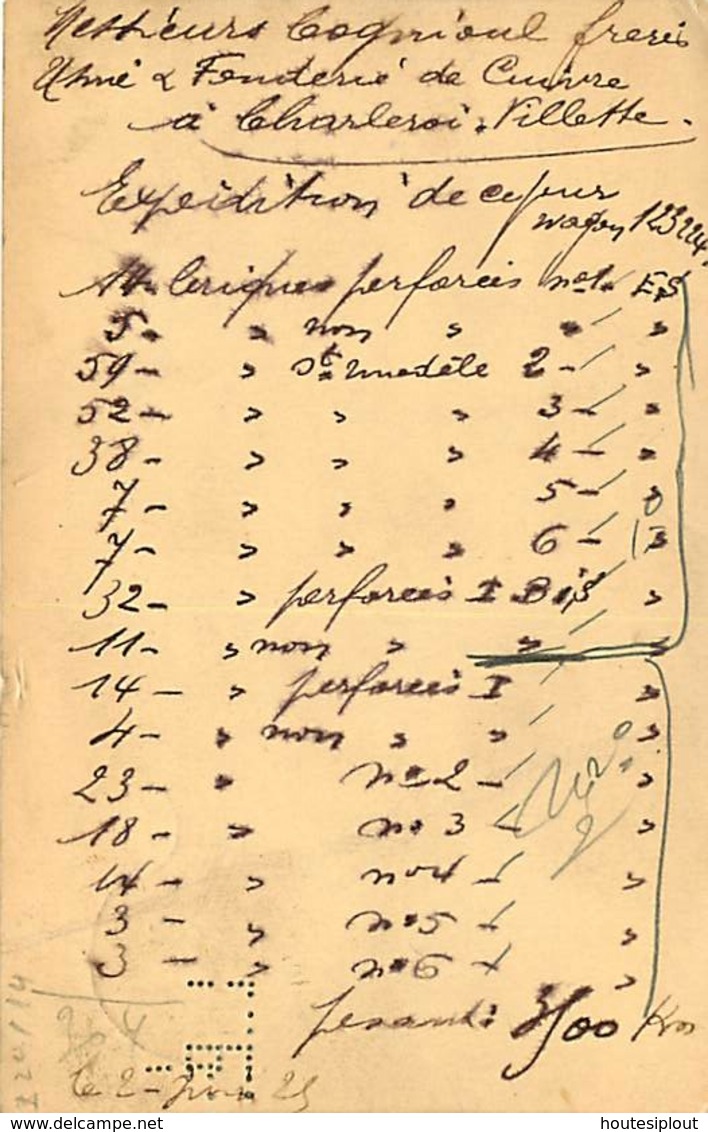 Messieurs Cognioul freres
Usine & Fonderie de Cuivre
à Charleroi. Villette.
Expédition de ce jour
wagon 123224
14 briques perforées no 1. Es
5 - " non " " "
59 - " St modèle 2 - "
52 - " " " 3 - "
38 - " " " 4 - "
7 - " " " 5 - "
7 - " " " 6 - "
32 - " perforées I Bis "
11 - " non " " "
14 - " perforées I "
4 - " non " " "
23 - " no 2 - "
18 - " no 3 - "
14 - " no 4 - "
3 - " no 5 - "
3 - " no 6 - "
pesant: 3500 Kos
le 2 - juin 25
houtesiplout